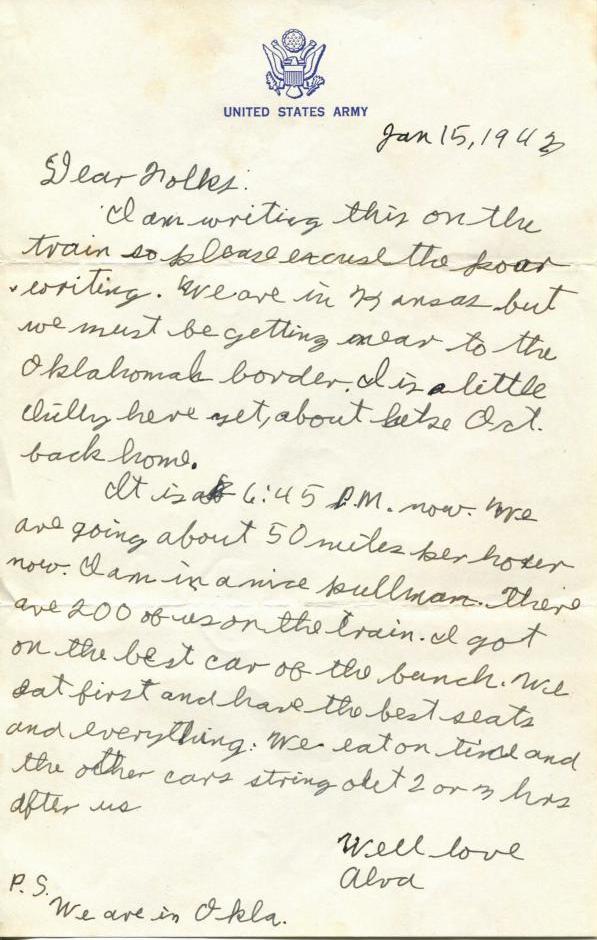 UNITED STATES ARMY
Jan 15, 1943
Dear Folks:
I am writing this on the
train so please excuse the poar
writing. We are in Kansas but
we must be getting near to the
Oklahomah border. I is a little
chilly here yet, about like Oct.
back home.
It is 6:45 P.M. now. We
are going about 50 miles per hour
now. I am in a nice pullman. There
are 200 of us on the train. I got
on the best car of the bunch. We
eat first and have the best seats
and everything. We eat on time and
the other cars string out 2 or 3 hrs
after us
Well love
Alva
P.S.
We are in Okla.